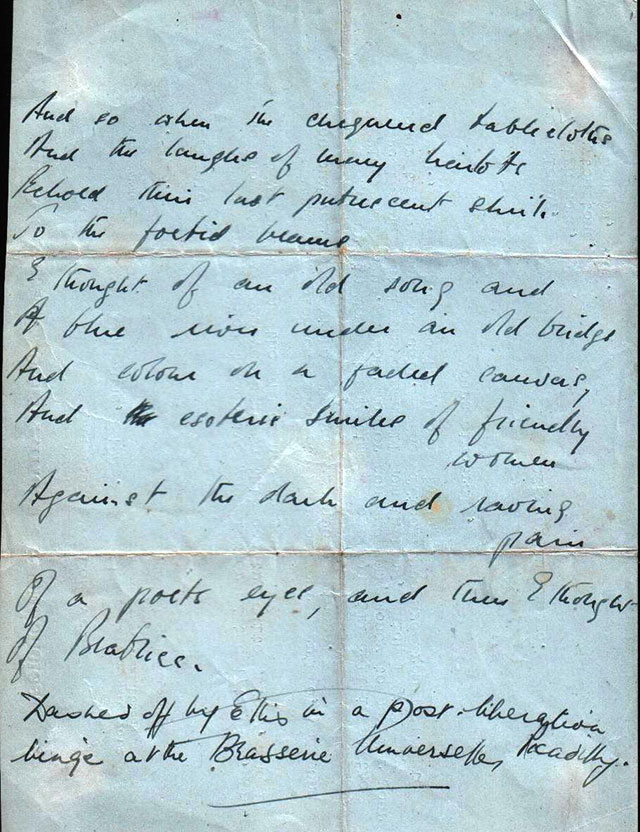 And so when the chequered tablecloths
And the laughs of many harlots
Behold last putrescent
To the foetid
I thought of an old song and
A blue river under an old bridge
And colour on a faded canvas,
And esoteric smiles of friendly
women
Against the dark and raving
pain
Of a poets eyes, and then I thought
Of Beatrice.
Dashed off by Ellis in a post-liberation
binge at the Brasserie Universelle, Piccadilly.